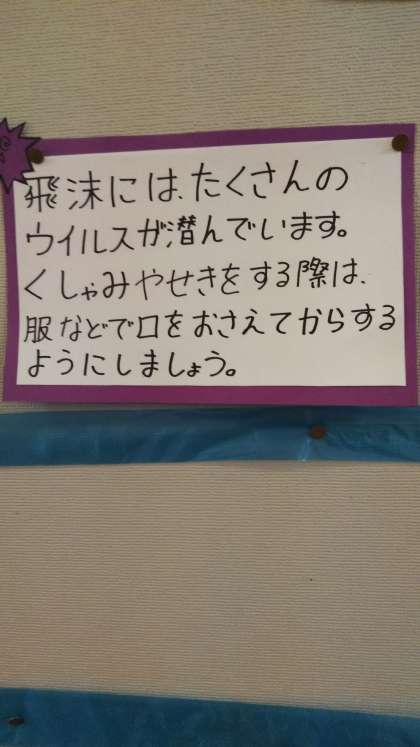 飛沫には、たくさんの
ウイルスが潜んでいます。
くしゃみやせきをする際は、
服などで口をおさえてからする
ようにしましょう。